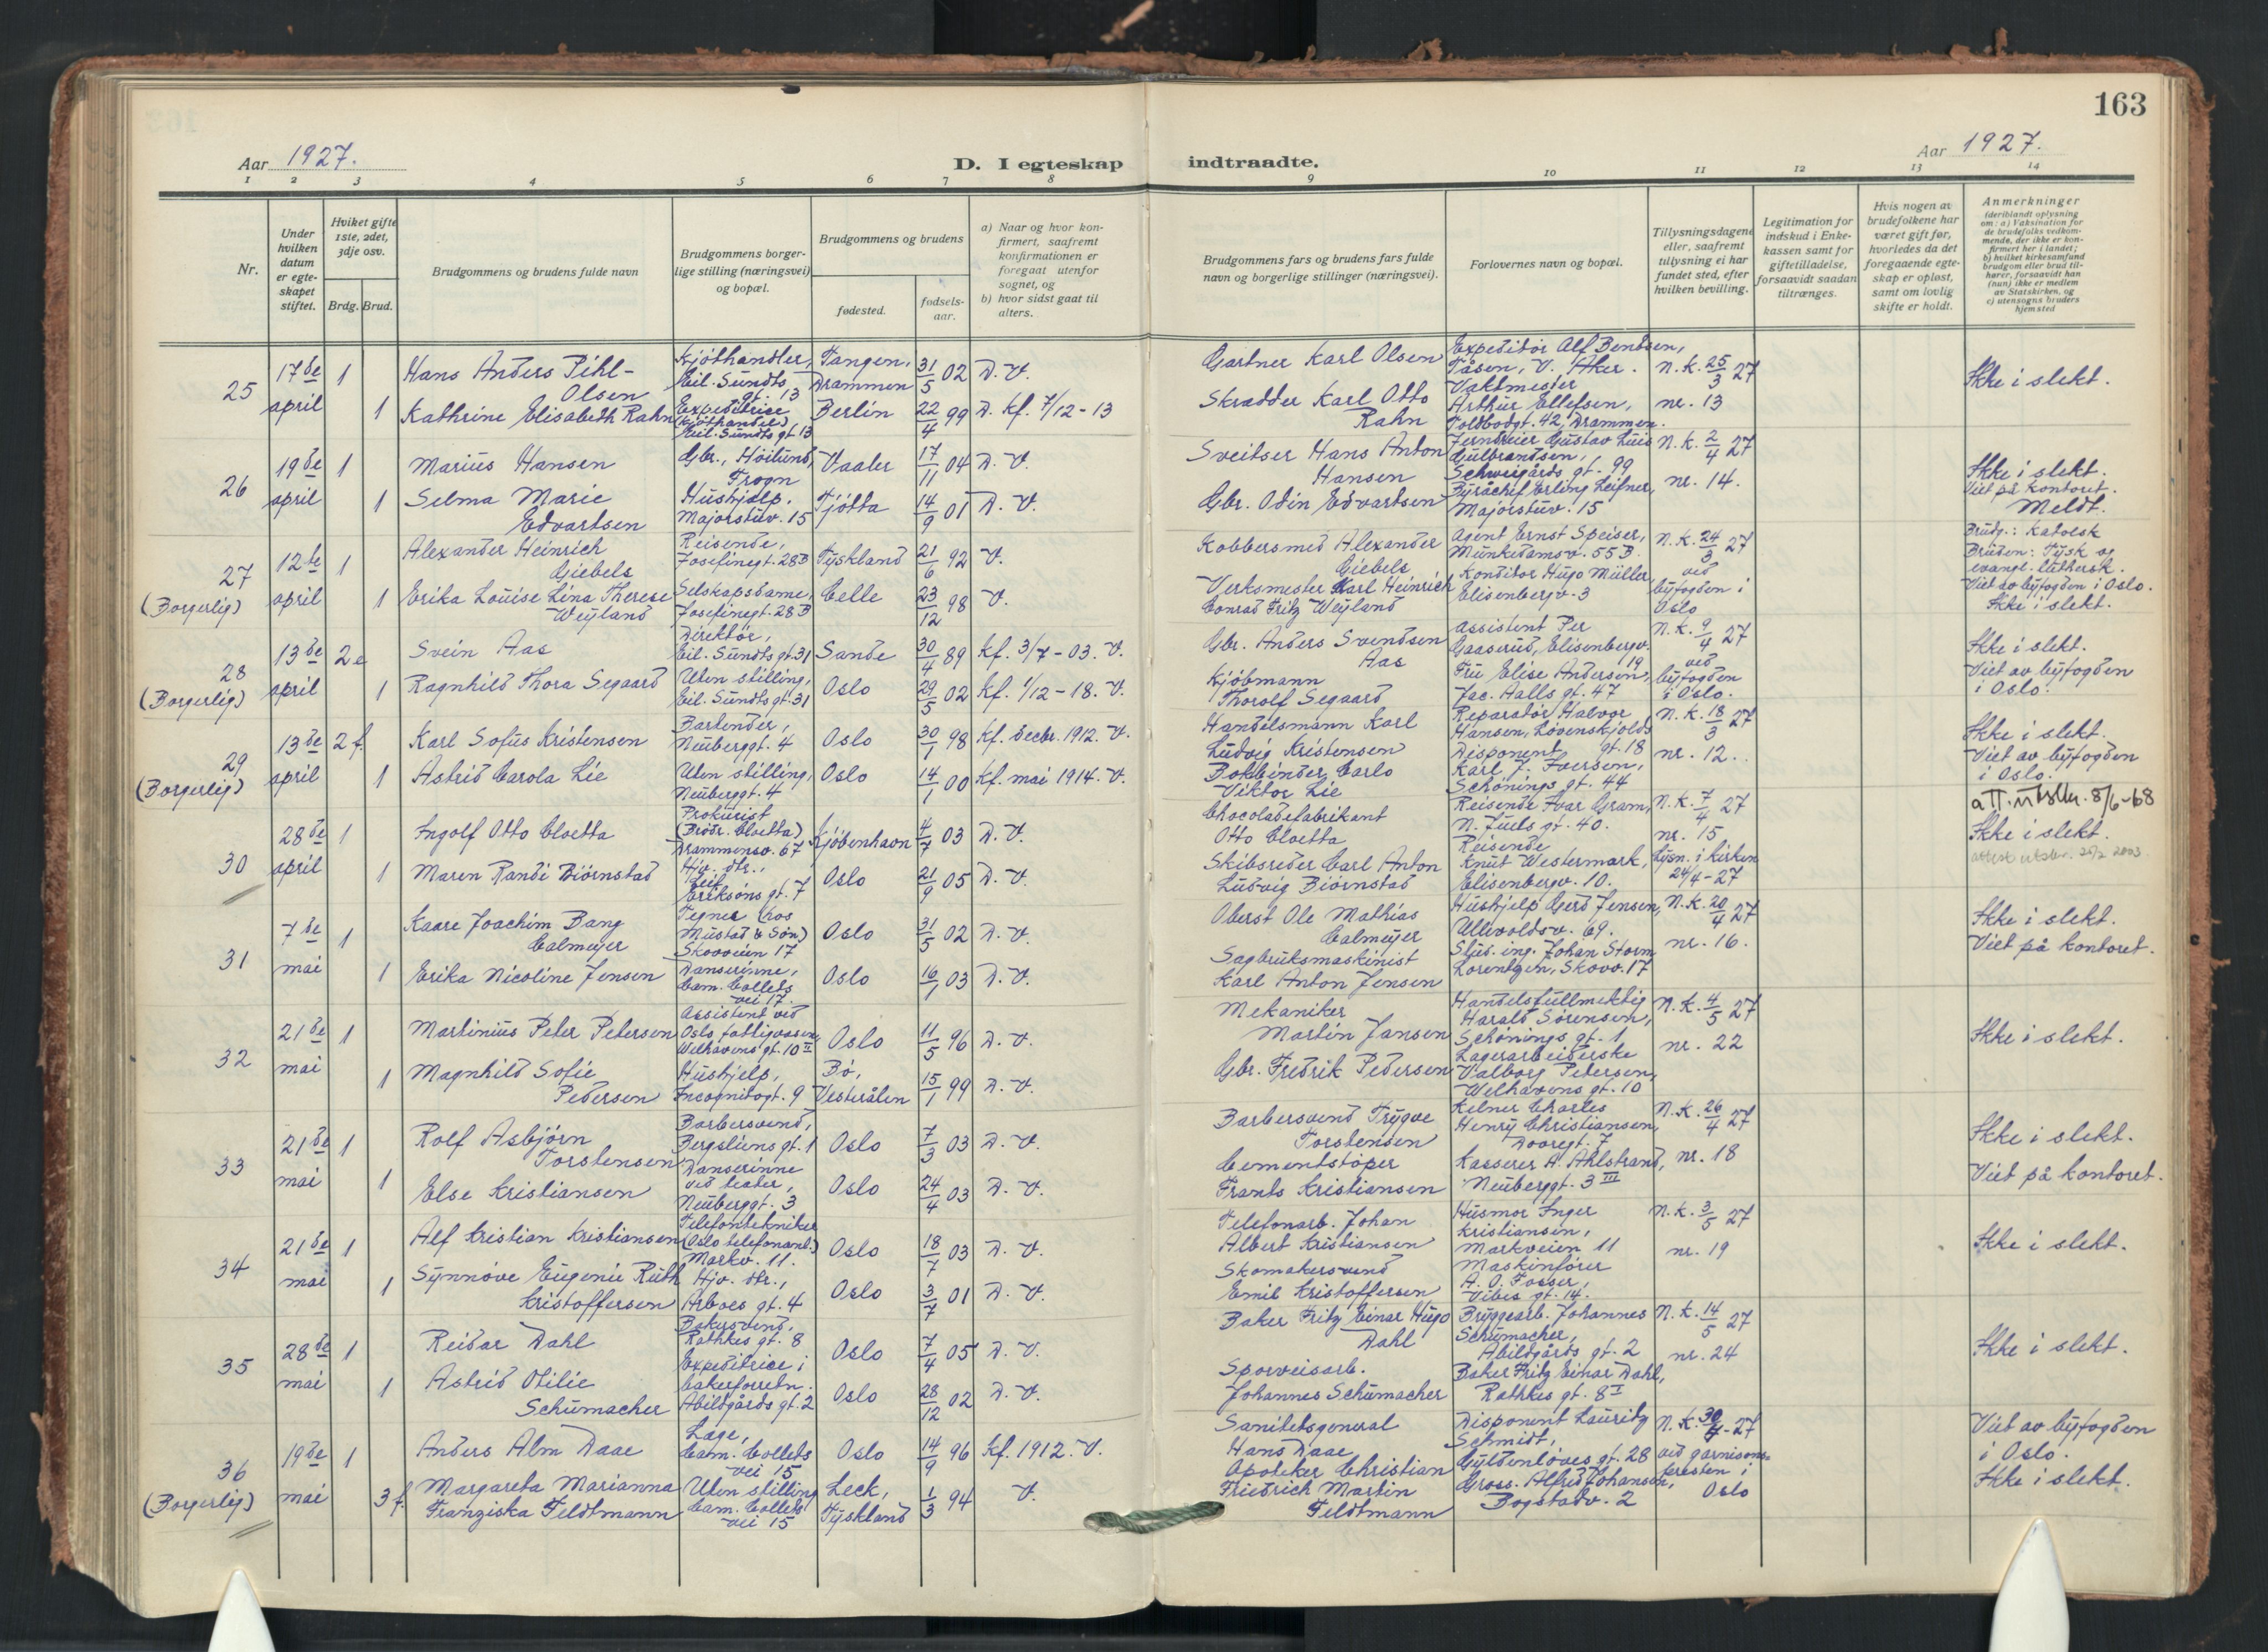 163
Aar 1927.
D. I egteskap indtraadte.
Aar 1927.
1 2 3 4 5 6 7 8 9 10 11 12 13 14
Nr.
Under hvilken datum er egteskapet stiftet.
Hvilket gifte 1ste, 2det, 3dje osv.
Brdg. Brud.
Brudgommens og brudens fulde navn
Brudgommens borgerlige stilling (næringsvei) og bopæl.
Brudgommens og brudens
fødested.
fødselsaar.
a) Naar og hvor konfirmert, saafremt konfirmationen er foregaat utenfor sognet, og
b) hvor sidst gaat til alters.
Brudgommens fars og brudens fars fulde navn og borgerlige stillinger (næringsvei).
Forlovernes navn og bopæl.
Tillysningsdagene eller, saafremt tillysning ei har fundet sted, efter hvilken bevilling.
Legitimation for indskud i Enkekassen samt for giftetilladelse, forsaavidt saadan tiltrænges.
Hvis nogen av brudefolkene har været gift før, hvorledes da det foregaaende egteskap er opløst, samt om lovlig skifte er holdt.
Anmerkninger
(deriblandt oplysning om: a) Vaksination for de brudefolks vedkommende, der ikke er konfirmert her i landet;
b) hvilket kirkesamfund brudgom eller brud tilhører, forsaavidt han (hun) ikke er medlem av Statskirken, og
c) utensogns bruders hjemsted
25
17de april
1
Hans Anders Pihl-Olsen
Kjøthandler, Eil. Sundts gt. 13
Tangen, Drammen
31/5 02
D. V.
Gartner Karl Olsen
Expeditør Alf Bendsen, Tåsen, V. Aker.
N.K. 25/3 27
Ikke i slekt.
1
Kathrine Elisabeth Rahn
Expeditrice (kjøthandel) Eil. Sundts gt. 13
Berlin
22/4 99
D. Kf. 7/12-13
Skrædder Karl Otto Rahn
Vaktmester Arthur Ellefsen, Toldbodgt. 42, Drammen.
nr. 13
26
19de april
1
Marius Hansen
Gbr., Høilund, Frogn
Vaaler
17/11 04
D. V.
Sveitser Hans Anton Hansen
Jerndreier Gustav Luis Gulbrandsen, Schweigårds gt. 99
N.K. 2/4 27
Ikke i slekt.
Viet på kontoret.
Meldt.
1
Selma Marie Edvartsen
Hushjelp. Majorstuv. 15
Tjøtta
14/9 01
D. V.
Gbr. Odin Edvartsen
Byråchef Erling Leifner, Majorstuv. 15
nr. 14.
27
(Borgerlig)
12te april
1
Alexander Heinrich Giebels
Reisende, Josefinegt. 28B
Tyskland
21/6 92
V.
Kobbersmed Alexander Giebels
Agent Ernst Speiser, Munkedamsv. 55B.
N.K. 24/3 27
ved byfogden i Oslo
Brudg.: Katolsk
Bruden: Tysk og evangl. luthersk.
Viet av byfogden i Oslo.
Ikke i slekt.
1
Erika Louise Lina Therese Weyland
Selskapsdame, Josefinegt. 28B
Celle
23/12 98
V.
Verksmester Karl Heinrich Conrad Fritz Weyland
Konditor Hugo Müller, Elisenbergv. 3
28
(Borgerlig)
13de april
2e
Svein Aas
Direktør, Eil. Sundts gt. 31
Sande
30/4 89
Kf. 3/7-03. V.
Gbr. Anders Svendsen Aas
Assistent Per Gaaserud, Elisenbergv. 19
N.K. 9/4 27
ved byfogden i Oslo.
Ikke i slekt.
Viet av byfogden i Oslo.
1
Ragnhild Thora Segaard
Uten stilling, Eil. Sundts gt. 31
Oslo
29/5 02
Kf. 1/12-18. V.
Kjøbmann Thorolf Segaard
Fru Elise Andersen, Jac. Aalls gt. 47
29
(Borgerlig)
13de april
2 f.
Karl Sofus Kristensen
Bartender, Neuberggt. 4
Oslo
30/1 98
Kf. decbr. 1912. V.
Handelsmann Karl Ludvig Kristensen
Reparatør Halvor Hansen, Løvenskjolds gt. 18
N.K. 18/3 27
nr. 12.
Ikke i slekt.
Viet av byfogden i Oslo.
1
Astrid Carola Lie
Uten stilling, Neuberggt. 4
Oslo
14/1 00
Kf. mai 1914. V.
Bokbinder Carlo Viktor Lie
Disponent Karl J. Iversen, Schønings gt. 44
30
28de april
1
Ingolf Otto Cloetta
Prokurist (Brødr. Cloetta) Drammensv. 67
Kjøbenhavn
4/7 03
D. V.
Chocoladefabrikant Otto Cloetta
Reisende Ivar Gram, N. Juels gt. 40.
N.K. 7/4 27
nr. 15
att. utstbr. 8/6-68
Ikke i slekt.
attest utstbr. 2003
1
Maren Randi Biørnstad
Hjv. dtr., Leif Eriksøns gt. 7
Oslo
21/9 05
D. V.
Skibsreder Carl Anton Ludvig Biørnstad
Reisende Knut Westermark, Elisenbergv. 10.
lysn. i kirken 24/4-27
31
7de mai
1
Kaare Joachim Bang Calmeyer
Tegner (hos Mustad & Søn) Skovveien 17
Oslo
31/5 02
D. V.
Oberst Ole Mathias Calmeyer
Hushjelp Gerd Jensen, Ullevoldsv. 69.
N.K. 20/4 27
nr. 16.
Ikke i slekt.
Viet på kontoret.
1
Erika Nicoline Jensen
Danserinne, Cam. Colletts vei 17.
Oslo
16/1 03
D. V.
Sagbruksmaskinist Karl Anton Jensen
Stud. ing. Johan Storm Lorentzen, Skovv. 17
32
21de mai
1
Martinius Peter Petersen
Assistent ved Oslo fattigvæsen, Welhavens gt. 10 II
Oslo
11/5 96
D. V.
Mekaniker Martin Jansen
Handelsfullmektig Harald Sørensen, Schønings gt. 1
N.K. 4/5 27
nr. 22
Ikke i slekt.
1
Magnhild Sofie Pedersen
Hushjelp, Incognitogt. 9
Bø, Vesterålen
15/1 99
D. V.
Gbr. Fredrik Pedersen
Lagerarbeiderske Valborg Petersen, Welhavens gt. 10
33
21de mai
1
Rolf Asbjørn Torstensen
Barbersvend, Bergsliens gt. 1
Oslo
7/3 03
D. V.
Barbersvend Trygve Torstensen
Kelner Charles Henry Christiansen, Dovregt. 7
N.K. 26/4 27
nr. 18
Ikke i slekt.
Viet på kontoret.
1
Else Kristiansen
Danserinne ved teater, Neuberggt. 3
Oslo
24/4 03
D. V.
Cementstøper Frants Kristiansen
Kasserer A. Ahlstrand, Neuberggt. 3 III
34
21de mai
1
Alf Kristian Kristiansen
Telefontekniker (Oslo telefonanl.) Markv. 11.
Oslo
18/7 03
D. V.
Telefonarb. Johan Albert Kristiansen
Husmor Inger Kristiansen, Markveien 11
N.K. 3/5 27
nr. 19
Ikke i slekt.
1
Synnøve Eugenie Ruth Kristoffersen
Hjv. dtr., Arboes gt. 4
Oslo
3/7 01
D. V.
Skomakersvend Emil Kristoffersen
Maskinfører A. O. Fosser, Vibes gt. 14.
35
28de mai
1
Reidar Dahl
Bakersvend, Rathkes gt. 8
Oslo
7/4 05
D. V.
Baker Fritz Einar Hugo Dahl
Bryggearb. Johannes Schumacher, Abildgårds gt. 2
N.K. 14/5 27
nr. 24
Ikke i slekt.
1
Astrid Otilie Schumacher
Expeditrice i bakerforretn. Abildgårds gt. 2
Oslo
28/12 02
D. V.
Sporveisarb. Johannes Schumacher
Baker Fritz Einar Dahl, Rathkes gt. 8 I
36
(Borgerlig)
19de mai
1
Anders Alm Daae
Læge, Cam. Colletts vei 15
Oslo
14/9 96
Kf. 1912. V.
Sanitetsgeneral Hans Daae
Disponent Lauritz Schmidt, Gyldenløves gt. 28
N.K. 30/4-27
ved garnisonspresten i Oslo
Viet av byfogden i Oslo.
Ikke i slekt.
3 f.
Margareta Marianna Franziska Feldtmann
Uten stilling Cam. Colletts vei 15
Leck, Tyskland
1/3 94
V.
Apotiker Christian Friedrich Martin Feldtmann
Gross. Alfred Johanson, Bogstadv. 2